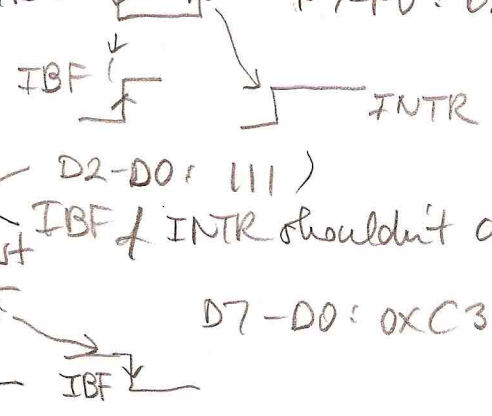 IBF
INTR
D2-D0: 111)
IBF & INTR shouldn't
st
D7-D0: 0xC3
IBF